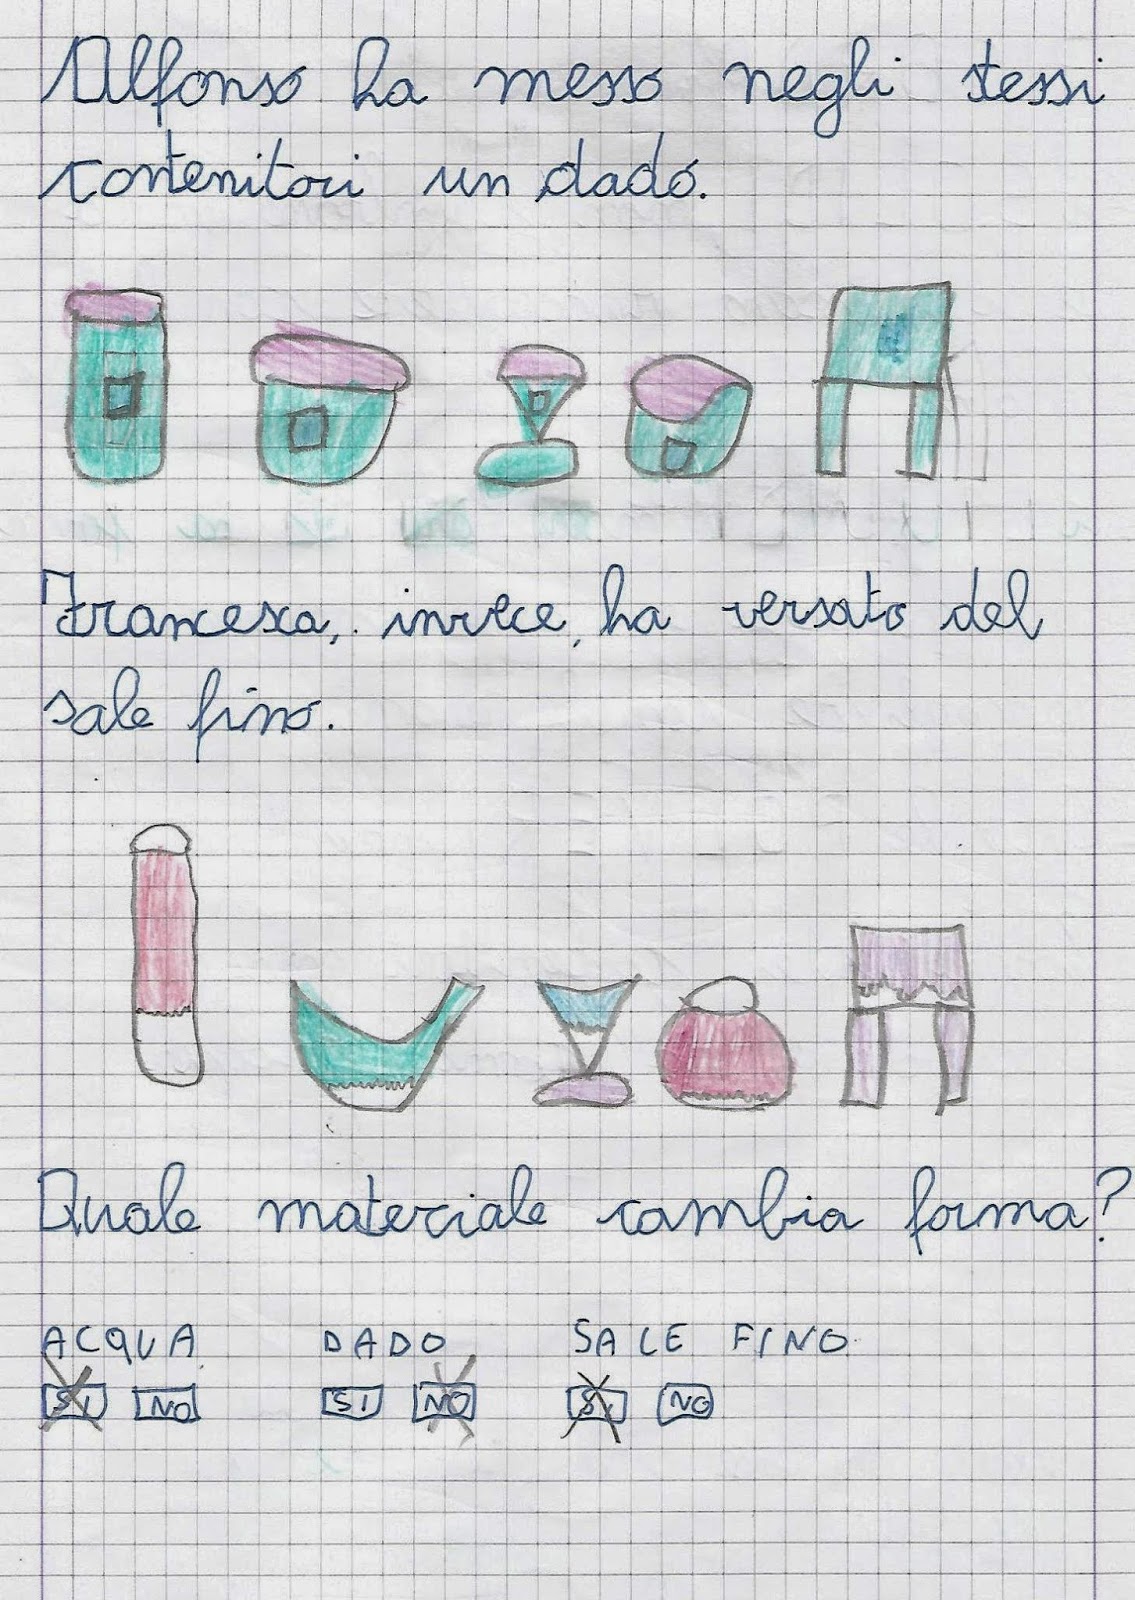 Alfonso ha messo negli stessi
contenitori un dado.
Francesca, invece, ha versato del
sale fino.
Quale materiale cambia forma?
ACQUA DADO SALE FINO
SI NO SI NO SI NO